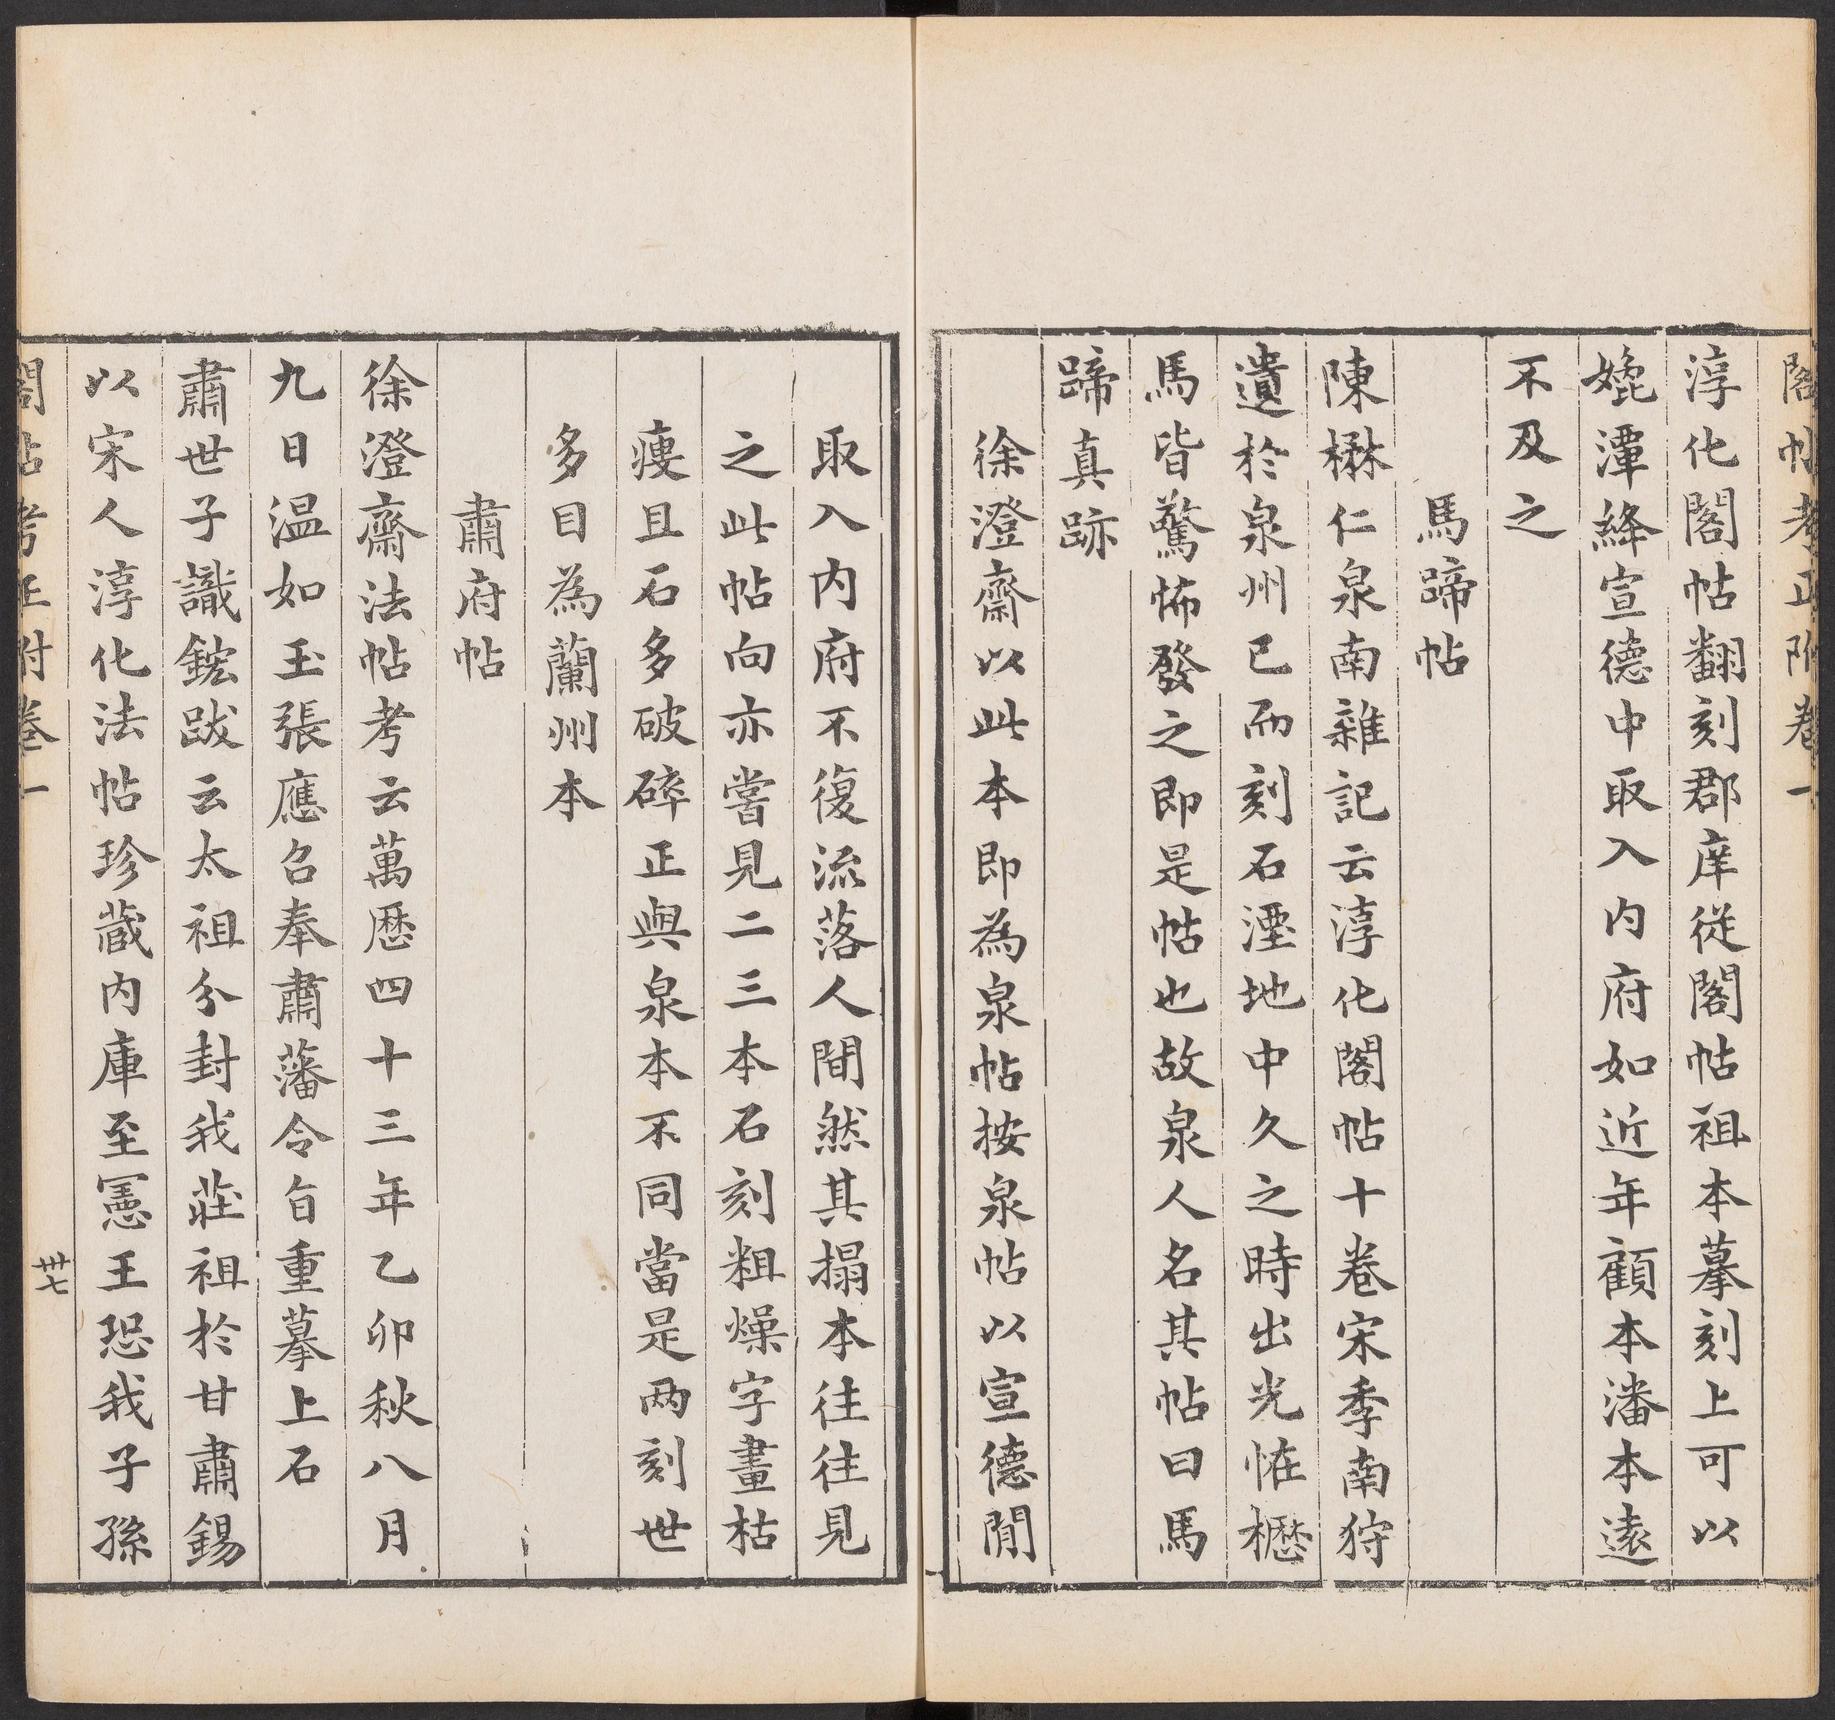 閣帖考正附卷一
淳化閣帖翻刻郡庠從閣帖祖本摹刻上可以
㝃潭絳宣德中取入内府如近年顧本潘本遠
不及之
馬蹄帖
陳楙仁泉南雜記云淳化閣帖十卷宋季南狩
遺於泉州已而刻石湮地中久之時出光恠櫪
馬皆驚怖發之即是帖也故泉人名其帖曰馬
蹄真跡
徐澄齋以此本即為泉帖按泉帖以宣德閒
取入内府不復流落人間然其搨本往往見
之此帖向亦嘗見二三本石刻粗燥字畫枯
痩且石多破碎正與泉本不同當是两刻世
多目為蘭州本
肅府帖
徐澄齋法帖考云萬厯四十三年乙卯秋八月
九日温如玉張應召奉肅藩令旨重摹上石
肅世子識鋐跋云太祖分封我莊祖於甘肅錫
以宋人淳化法帖珍藏内庫至憲王恐我子孫
閣帖考正附卷一
卅七